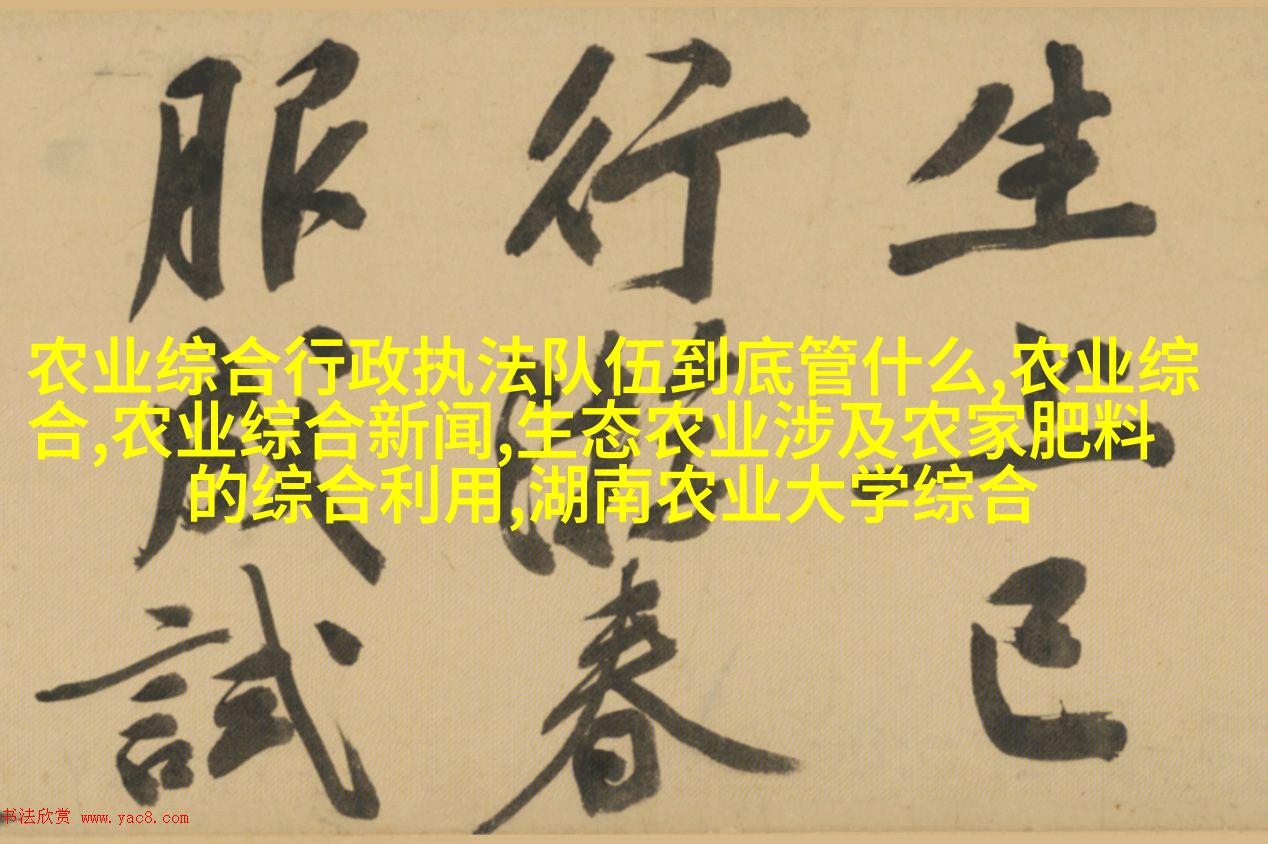 生上巳
行春
服成試
农业综合行政执法队伍到底管什么,农业综
合,农业综合新闻,生态农业涉及农家肥料
的综合利用,湖南农业大学综合
书法欣赏 www.yac8.com